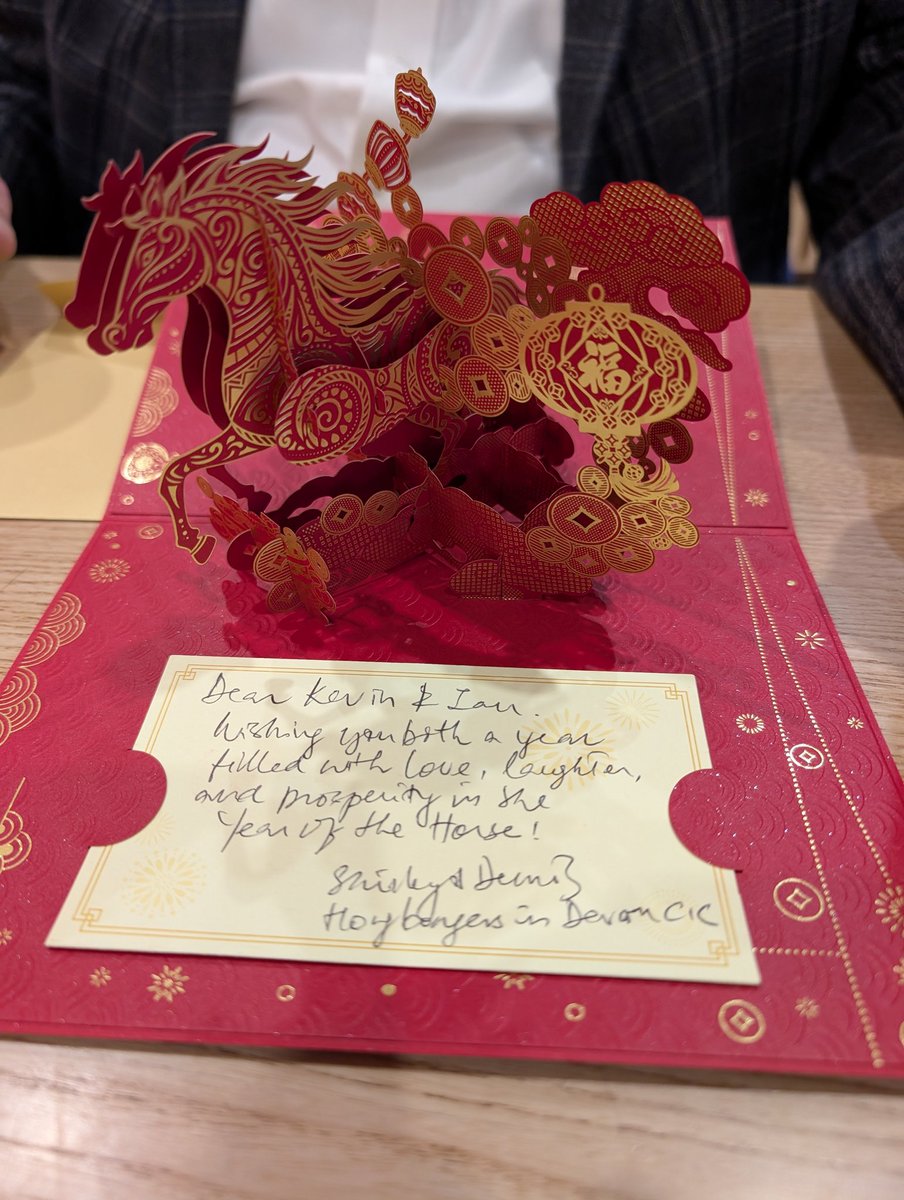 福
Dear Kevin & Ian.
Wishing you both a year
filled with love, laughter,
and prosperity in the
Year of the Horse!
Shirley & Dennis
Hongkongers in Devon CIC